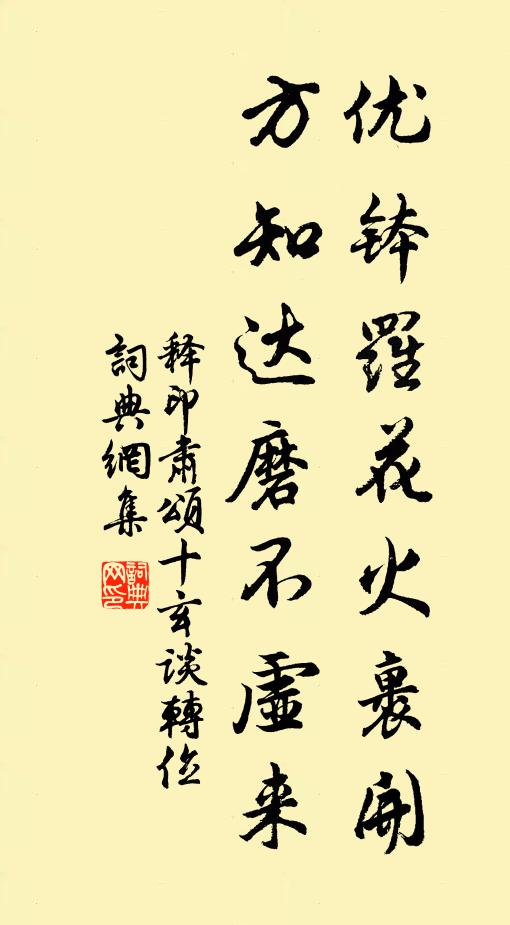 优钵羅花火裏開
方知达磨不虚来
释印肃頌十玄谈轉位
詞典網集
詞典网印